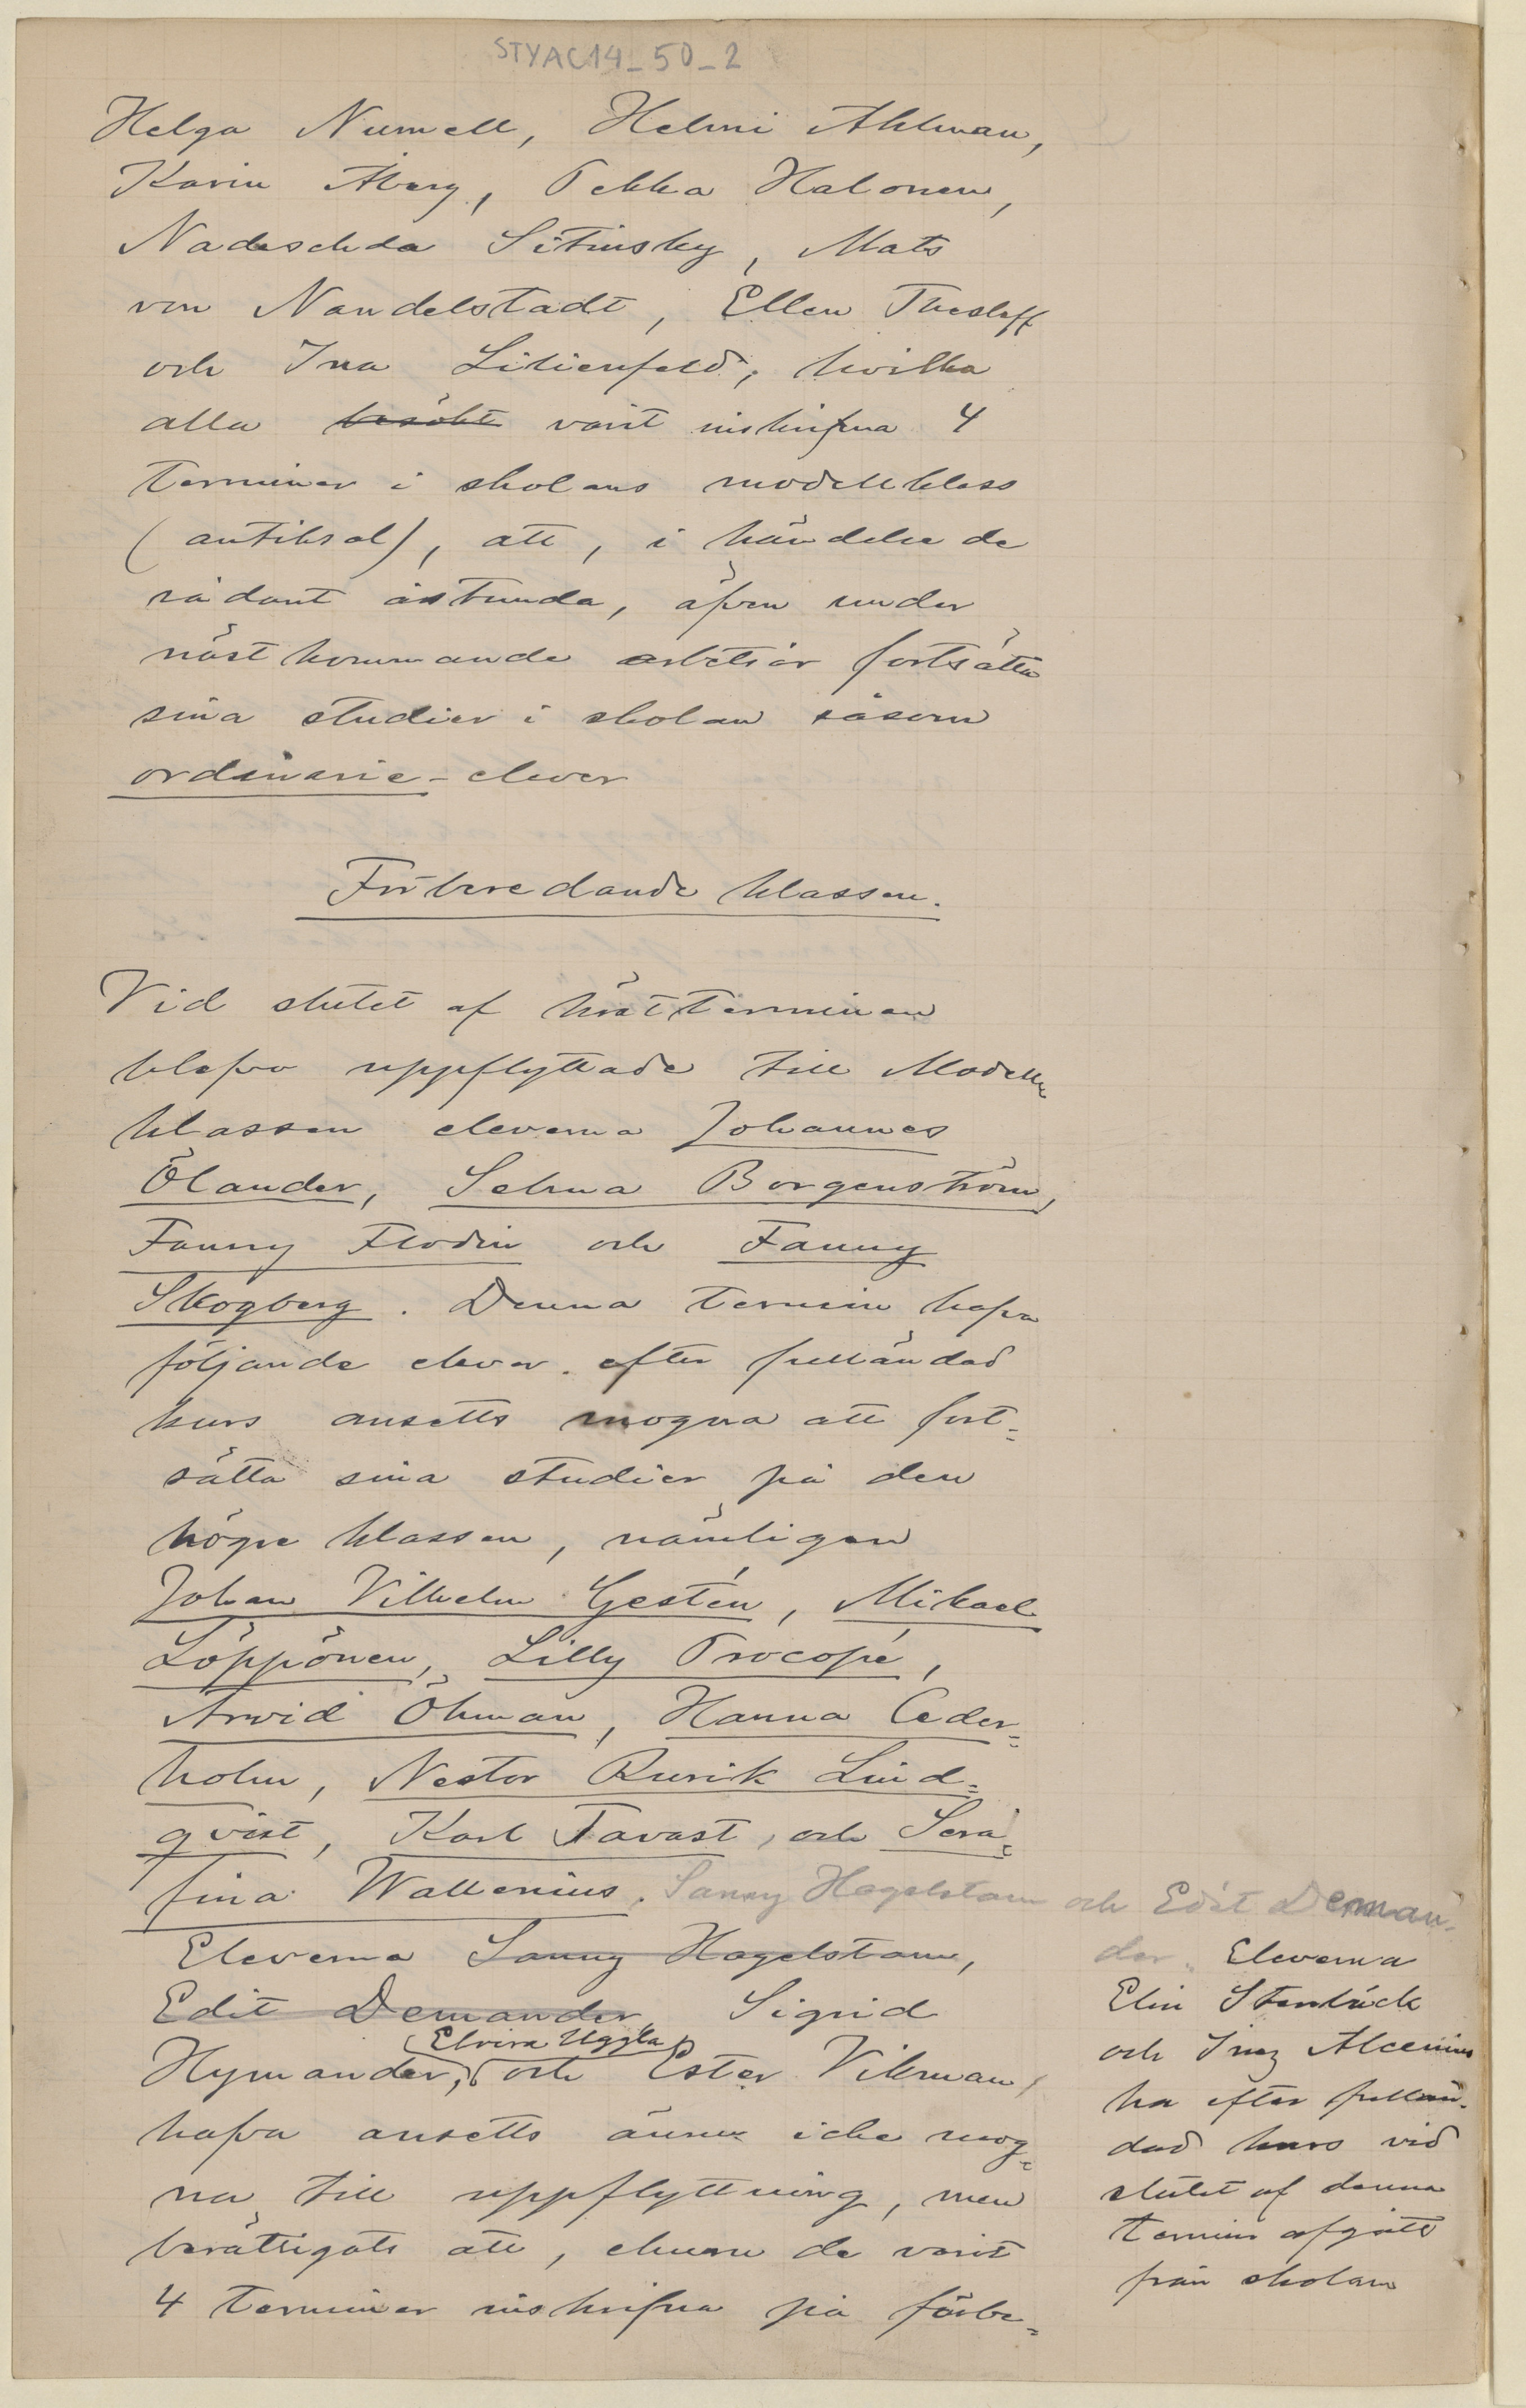 STYAC14_50_2
Helga Numell, Helmi Ahlman,
Karin Åberg, Pekka Halonen,
Nadeschda Sitinsky, Mats
von Nandelstadt, Ellen Thesleff
och Ina Lilienfeld, hvilka
alla besökt varit inskrifna 4
terminer i skolans modellklass
(antiksal), att, i händelse de
sådant åstunda, äfven under
nästkommande arbetsår fortsätta
sina studier i skolan såsom
ordinarie-elever
Förberedande klassen.
Vid slutet af höstterminen
blefvo uppflyttade till Modell-
klassen eleverna Johannes
Ölander, Selma Borgenström,
Fanny Flodin och Fanny
Skogberg. Denna termin hafva
följande elever efter fulländad
kurs ansetts mogna att fort=
sätta sina studier på den
högre klassen, nämligen
Johan Vilhelm Gestén, Mikael
Löppönen, Lilly Procopé,
Arvid Öhman, Hanna Ceder=
holm, Nestor Rurik Lind=
qvist, Karl Tavast, och Sera=
fina Wallenius, Sanny Hagelstam och Edit Deman-
der. Eleverna
Elin Stenbäck
och Inez Alcenius
ha efter fullän-
dad kurs vid
slutet af denna
termin afgått
från skolan
Eleverna Sanny Hagelstam,
Edit Demander, Sigrid
Elvira Uggla
Hymander, och Ester Vikman,
hafva ansetts ännu icke mog=
na till uppflyttning, men
berättigats att, ehuru de varit
4 terminer inskrifna på förbe=